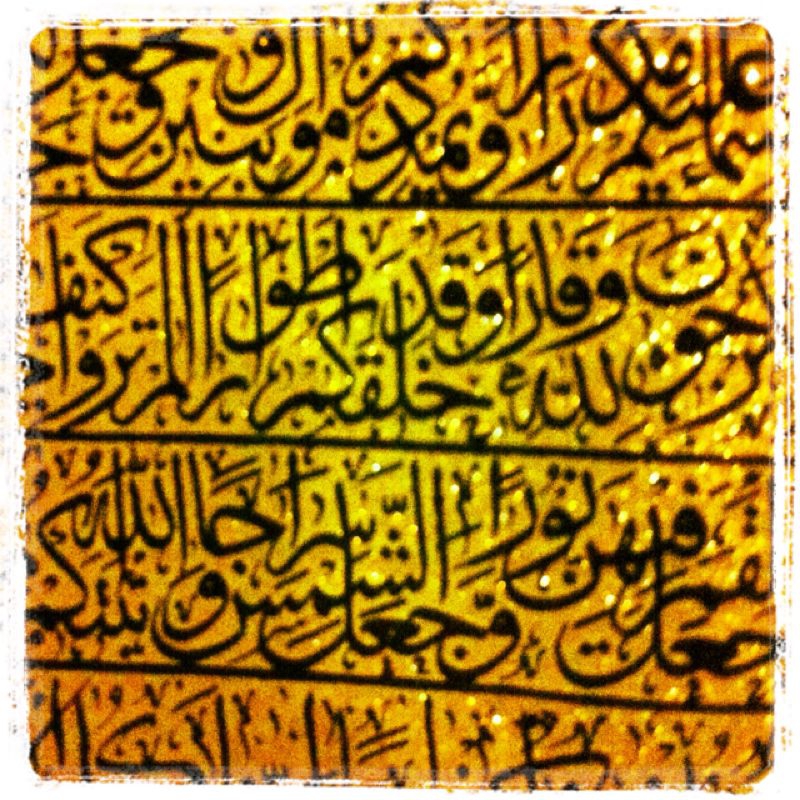 عَلَيْكُم مِّدْرَارًا وَيُمْدِدْكُم بِأَمْوَالٍ وَبَنِينَ وَيَجْعَل
تَرْجُونَ لِلَّهِ وَقَارًا وَقَدْ خَلَقَكُمْ أَطْوَارًا أَلَمْ تَرَوْا كَيْفَ
وَجَعَلَ الْقَمَرَ فِيهِنَّ نُورًا وَجَعَلَ الشَّمْسَ سِرَاجًا وَاللَّهُ أَنبَتَكُم